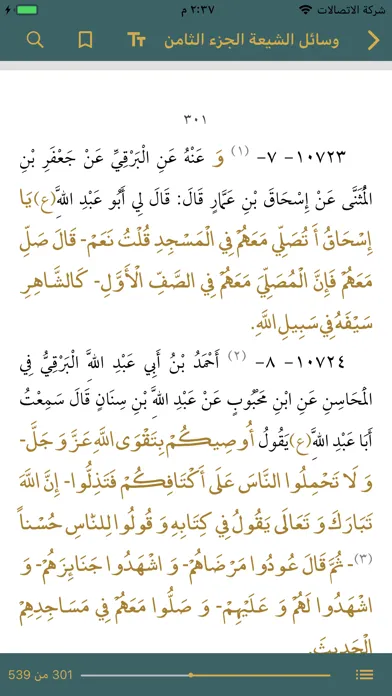 شركة الاتصالات ٢:٣٧ م
وسائل الشيعة الجزء الثامن
٣٠١
١٠٧٢٣- ٧- (١) وَ عَنْهُ عَنِ الْبَرْقِيِّ عَنْ جَعْفَرِ بْنِ
الْمُثَنَّى عَنْ إِسْحَاقَ بْنِ عَمَّارٍ قَالَ: قَالَ لِي أَبُو عَبْدِ اللَّهِ(ع)يَا
إِسْحَاقُ أَ تُصَلِّي مَعَهُمْ فِي الْمَسْجِدِ قُلْتُ نَعَمْ- قَالَ صَلِّ
مَعَهُمْ فَإِنَّ الْمُصَلِّيَ مَعَهُمْ فِي الصَّفِّ الْأَوَّلِ- كَالشَّاهِرِ
سَيْفَهُ فِي سَبِيلِ اللَّهِ.
١٠٧٢٤- ٨- (٢) أَحْمَدُ بْنُ أَبِي عَبْدِ اللَّهِ الْبَرْقِيُّ فِي
الْمَحَاسِنِ عَنِ ابْنِ مَحْبُوبٍ عَنْ عَبْدِ اللَّهِ بْنِ سِنَانٍ قَالَ سَمِعْتُ
أَبَا عَبْدِ اللَّهِ(ع)يَقُولُ أُوصِيكُمْ بِتَقْوَى اللَّهِ عَزَّ وَ جَلَّ-
وَ لَا تَحْمِلُوا النَّاسَ عَلَى أَكْتَافِكُمْ فَتَذِلُّوا- إِنَّ اللَّهَ
تَبَارَكَ وَ تَعَالَى يَقُولُ فِي كِتَابِهِ وَ قُولُوا لِلنَّاسِ حُسْناً
(٣)- ثُمَّ قَالَ عُودُوا مَرْضَاهُمْ- وَ اشْهَدُوا جَنَائِزَهُمْ- وَ
اشْهَدُوا لَهُمْ وَ عَلَيْهِمْ- وَ صَلُّوا مَعَهُمْ فِي مَسَاجِدِهِمْ
الْحَدِيثَ.
301 من 539